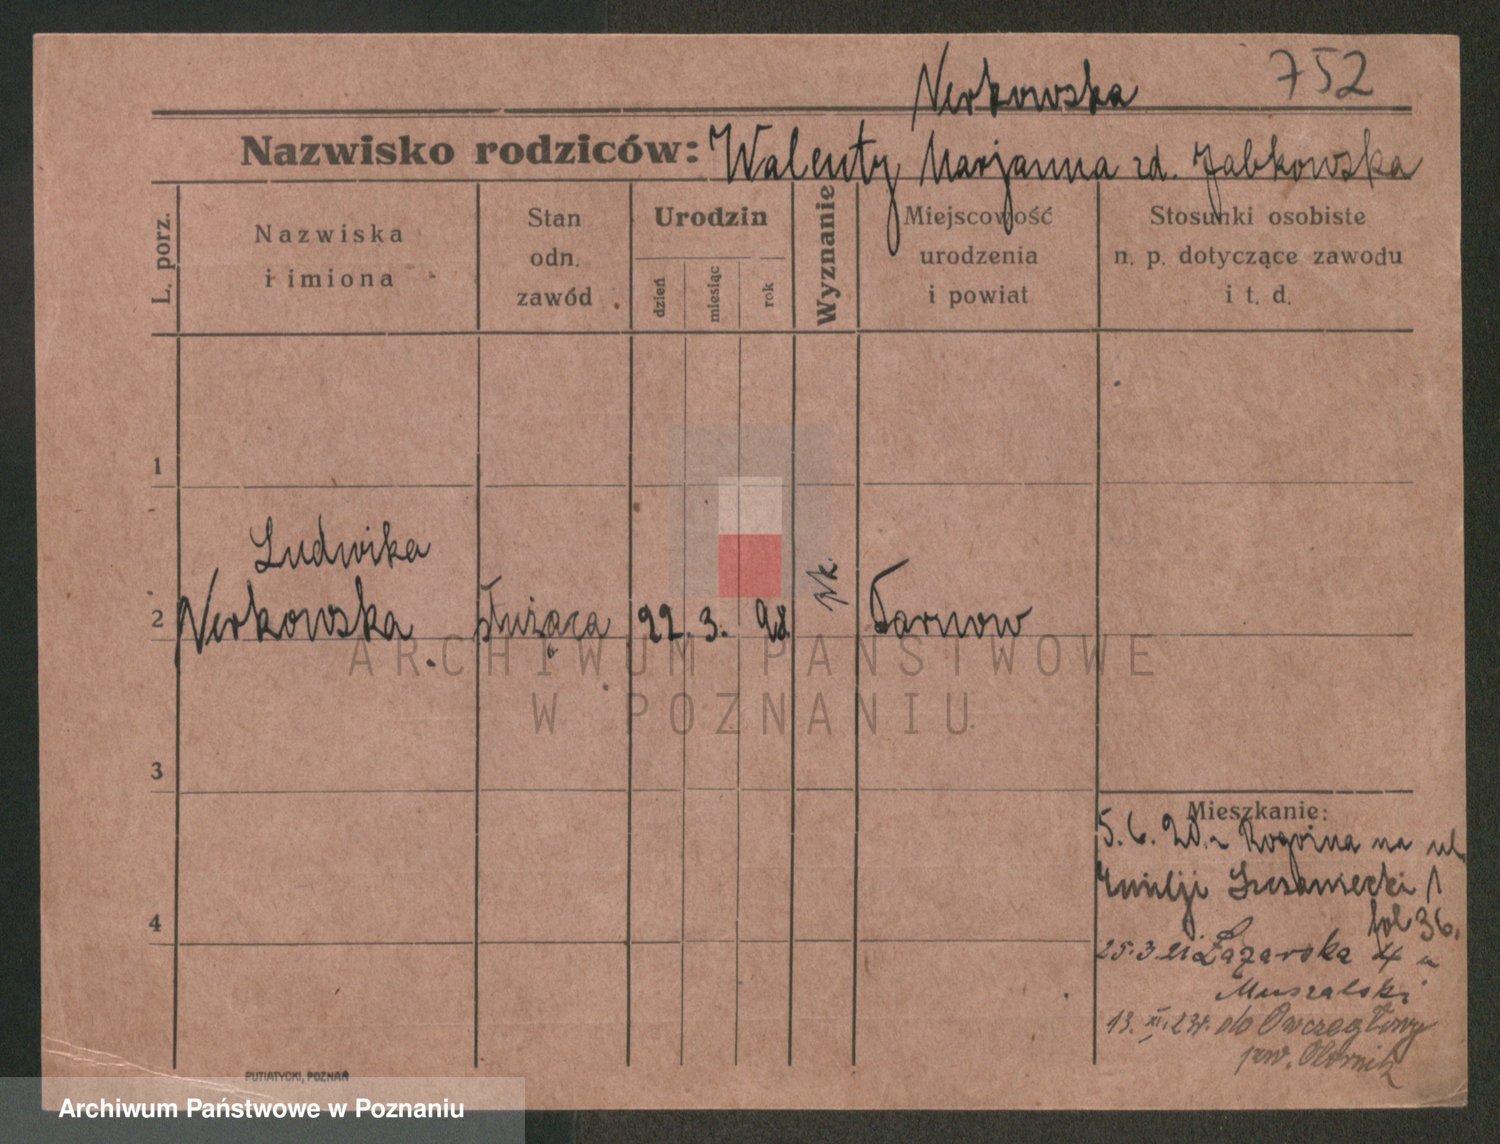 Nerkowska 752
Nazwisko rodziców: Walenty Marjanna zd. Jabkowska
L. porz.
Nazwiska
i imiona
Stan
odn.
zawód
Urodzin
dzień
miesiąc
rok
Wyznanie
Miejscowość
urodzenia
i powiat
Stosunki osobiste
n. p. dotyczące zawodu
i t. d.
1
Ludwika
2 Nerkowska służąca 22. 3. 98 rk. Tarnow
ARCHIWUM PAŃSTWOWE
W POZNANIU
3
Mieszkanie:
5.6.20. Rogozina na ul.
Emilji Szczanieckiej 1
fol 36.
4
25.3.21. Łazarska 4 u
Muszalski
13. XI. 23r. do Owczegłowy
pow. Obornik
PUTIATYCKI, POZNAŃ
Archiwum Państwowe w Poznaniu